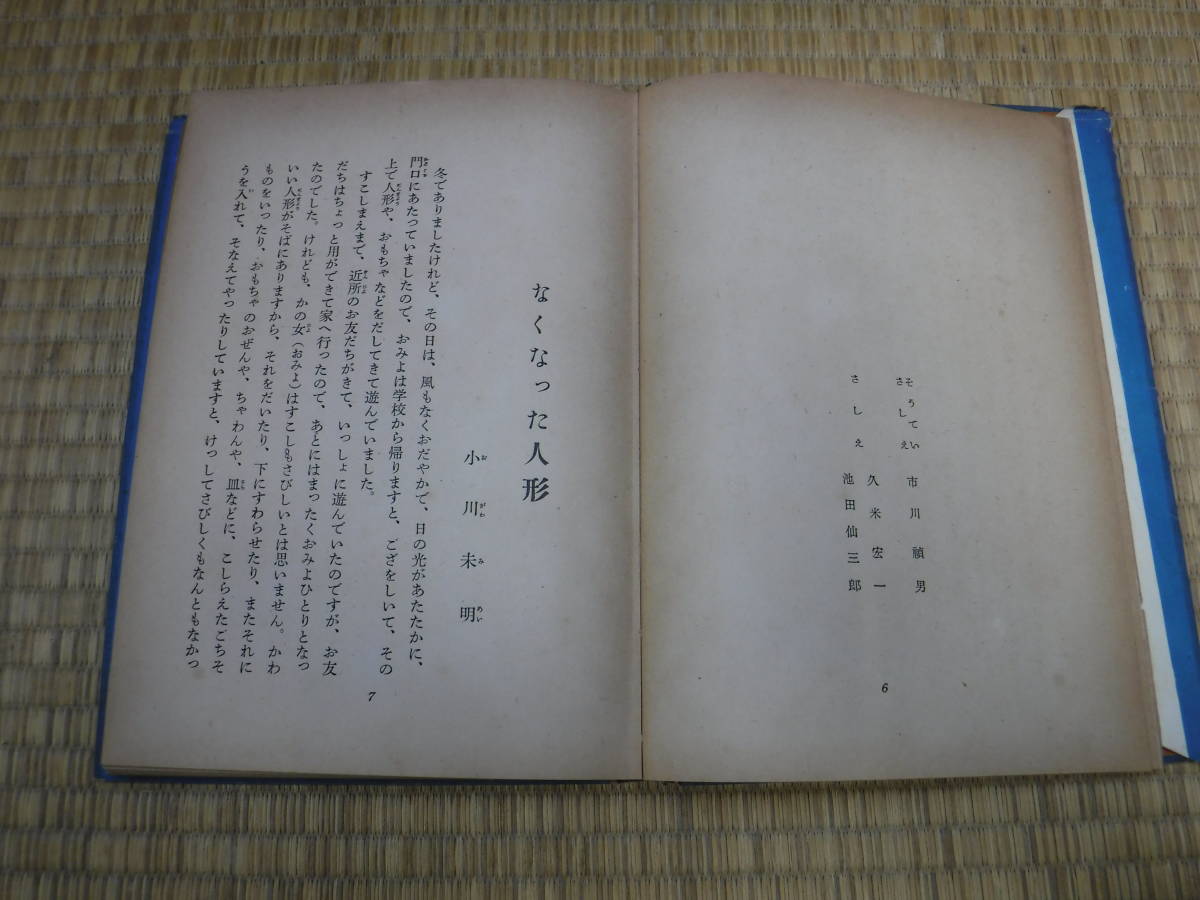 そうてい
さしえ 市川禎男
久米宏一
さしえ 池田仙三郎
6
なくなった人形
小川未明
冬でありましたけれど、その日は、風もなくおだやかで、日の光があたたかに、
門口にあたっていましたので、おみよは学校から帰りますと、ござをしいて、その
上で人形や、おもちゃなどをだしてきて遊んでいました。
すこしまえまで、近所のお友だちがきて、いっしょに遊んでいたのですが、お友
だちはちょっと用ができて家へ行ったので、あとにはまったくおみよひとりとなっ
たのでした。けれども、かの女(おみよ)はすこしもさびしいとは思いません。かわ
いい人形がそばにありますから、それをだいたり、下にすわらせたり、またそれに
ものをいったり、おもちゃのおぜんや、ちゃわんや、皿などに、こしらえたごちそ
うを入れて、そなえてやったりしていますと、けっしてさびしくもなんともなかっ
7